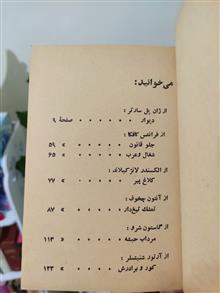 می‌خوانید:
از ژان پل سارتر:
دیوار . . . . . . صفحهٔ ۹
از فرانتس کافکا:
جلو قانون . . . . . » ۵۹
شغال و عرب . . . . . » ۶۵
از الکساندر لانژ کیلاند:
کلاغ پیر . . . . . » ۷۷
از آنتون چخوف:
تمشک تیغ‌دار . . . . . » ۸۷
از گاستون شرو:
مرداب حبشه . . . . . » ۱۱۳
از آرتور شنیتسلر:
کور و برادرش . . . . . » ۱۲۳